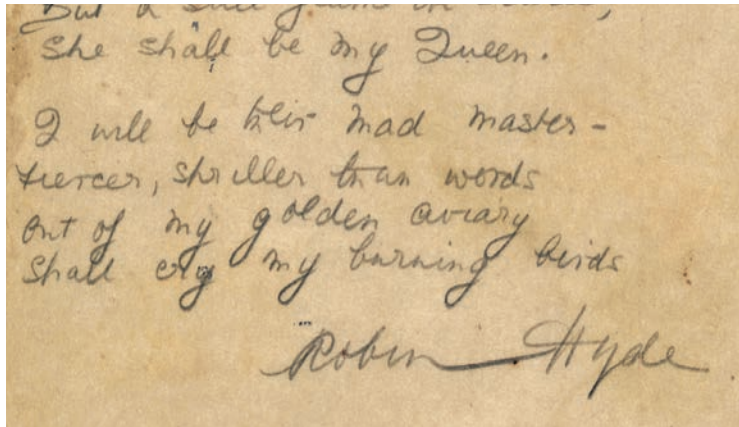 But a
She shall be my Queen.
I will be their mad master -
Fiercer, shriller than words
Out of my golden aviary
Shall cry my burning birds
Robin Hyde